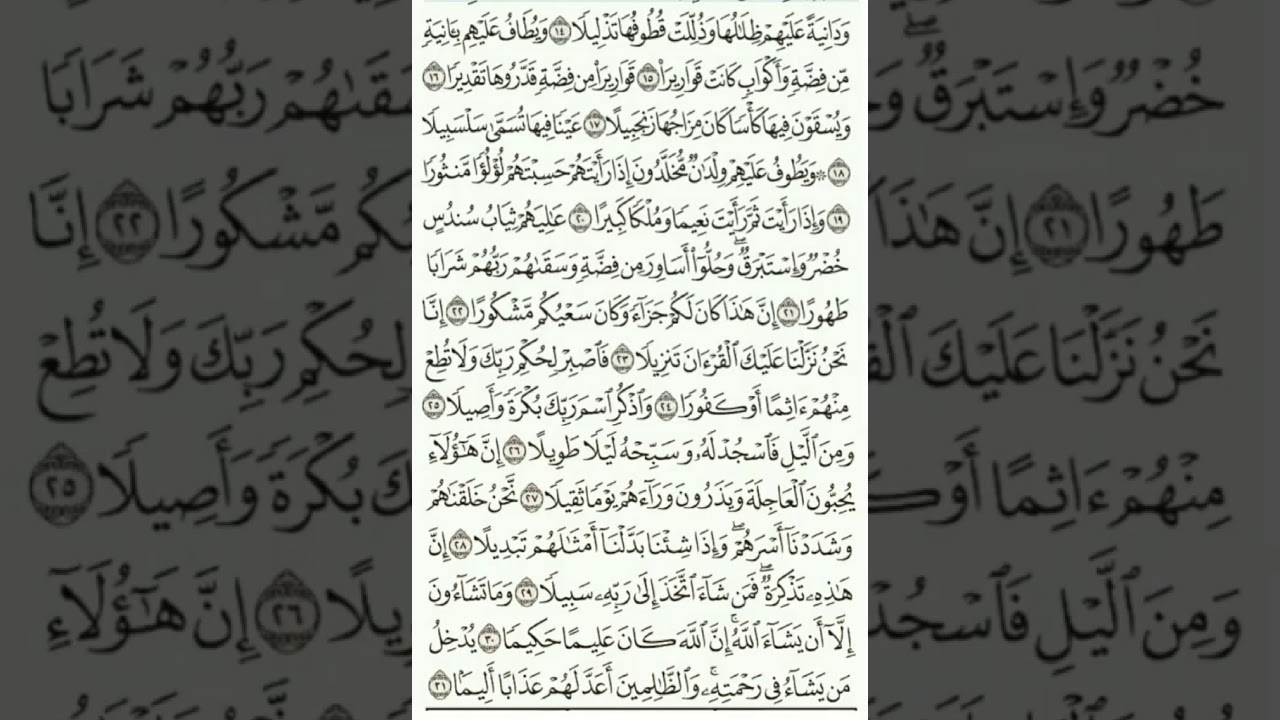 وَدَانِيَةً عَلَيْهِمْ ظِلَٰلُهَا وَذُلِّلَتْ قُطُوفُهَا تَذْلِيلًا ١٤ وَيُطَافُ عَلَيْهِم بِـَٔانِيَةٍ
مِّن فِضَّةٍ وَأَكْوَابٍ كَانَتْ قَوَارِيرَا۠ ١٥ قَوَارِيرَا۟ مِن فِضَّةٍ قَدَّرُوهَا تَقْدِيرًا ١٦
وَيُسْقَوْنَ فِيهَا كَأْسًا كَانَ مِزَاجُهَا زَنجَبِيلًا ١٧ عَيْنًا فِيهَا تُسَمَّىٰ سَلْسَبِيلًا
١٨ ۞ وَيَطُوفُ عَلَيْهِمْ وِلْدَٰنٌ مُّخَلَّدُونَ إِذَا رَأَيْتَهُمْ حَسِبْتَهُمْ لُؤْلُؤًا مَّنثُورًا
١٩ وَإِذَا رَأَيْتَ ثَمَّ رَأَيْتَ نَعِيمًا وَمُلْكًا كَبِيرًا ٢٠ عَٰلِيَهُمْ ثِيَابُ سُندُسٍ
خُضْرٌ وَإِسْتَبْرَقٌ ۖ وَحُلُّوٓا۟ أَسَاوِرَ مِن فِضَّةٍ وَسَقَىٰهُمْ رَبُّهُمْ شَرَابًا
طَهُورًا ٢١ إِنَّ هَٰذَا كَانَ لَكُمْ جَزَآءً وَكَانَ سَعْيُكُم مَّشْكُورًا ٢٢ إِنَّا
نَحْنُ نَزَّلْنَا عَلَيْكَ ٱلْقُرْءَانَ تَنزِيلًا ٢٣ فَٱصْبِرْ لِحُكْمِ رَبِّكَ وَلَا تُطِعْ
مِنْهُمْ ءَاثِمًا أَوْ كَفُورًا ٢٤ وَٱذْكُرِ ٱسْمَ رَبِّكَ بُكْرَةً وَأَصِيلًا ٢٥
وَمِنَ ٱلَّيْلِ فَٱسْجُدْ لَهُۥ وَسَبِّحْهُ لَيْلًا طَوِيلًا ٢٦ إِنَّ هَٰٓؤُلَآءِ
يُحِبُّونَ ٱلْعَاجِلَةَ وَيَذَرُونَ وَرَآءَهُمْ يَوْمًا ثَقِيلًا ٢٧ نَّحْنُ خَلَقْنَٰهُمْ
وَشَدَدْنَآ أَسْرَهُمْ ۖ وَإِذَا شِئْنَا بَدَّلْنَآ أَمْثَٰلَهُمْ تَبْدِيلًا ٢٨ إِنَّ
هَٰذِهِۦ تَذْكِرَةٌ ۖ فَمَن شَآءَ ٱتَّخَذَ إِلَىٰ رَبِّهِۦ سَبِيلًا ٢٩ وَمَا تَشَآءُونَ
إِلَّآ أَن يَشَآءَ ٱللَّهُ ۚ إِنَّ ٱللَّهَ كَانَ عَلِيمًا حَكِيمًا ٣٠ يُدْخِلُ
مَن يَشَآءُ فِى رَحْمَتِهِۦ ۚ وَٱلظَّٰلِمِينَ أَعَدَّ لَهُمْ عَذَابًا أَلِيمًۢا ٣١